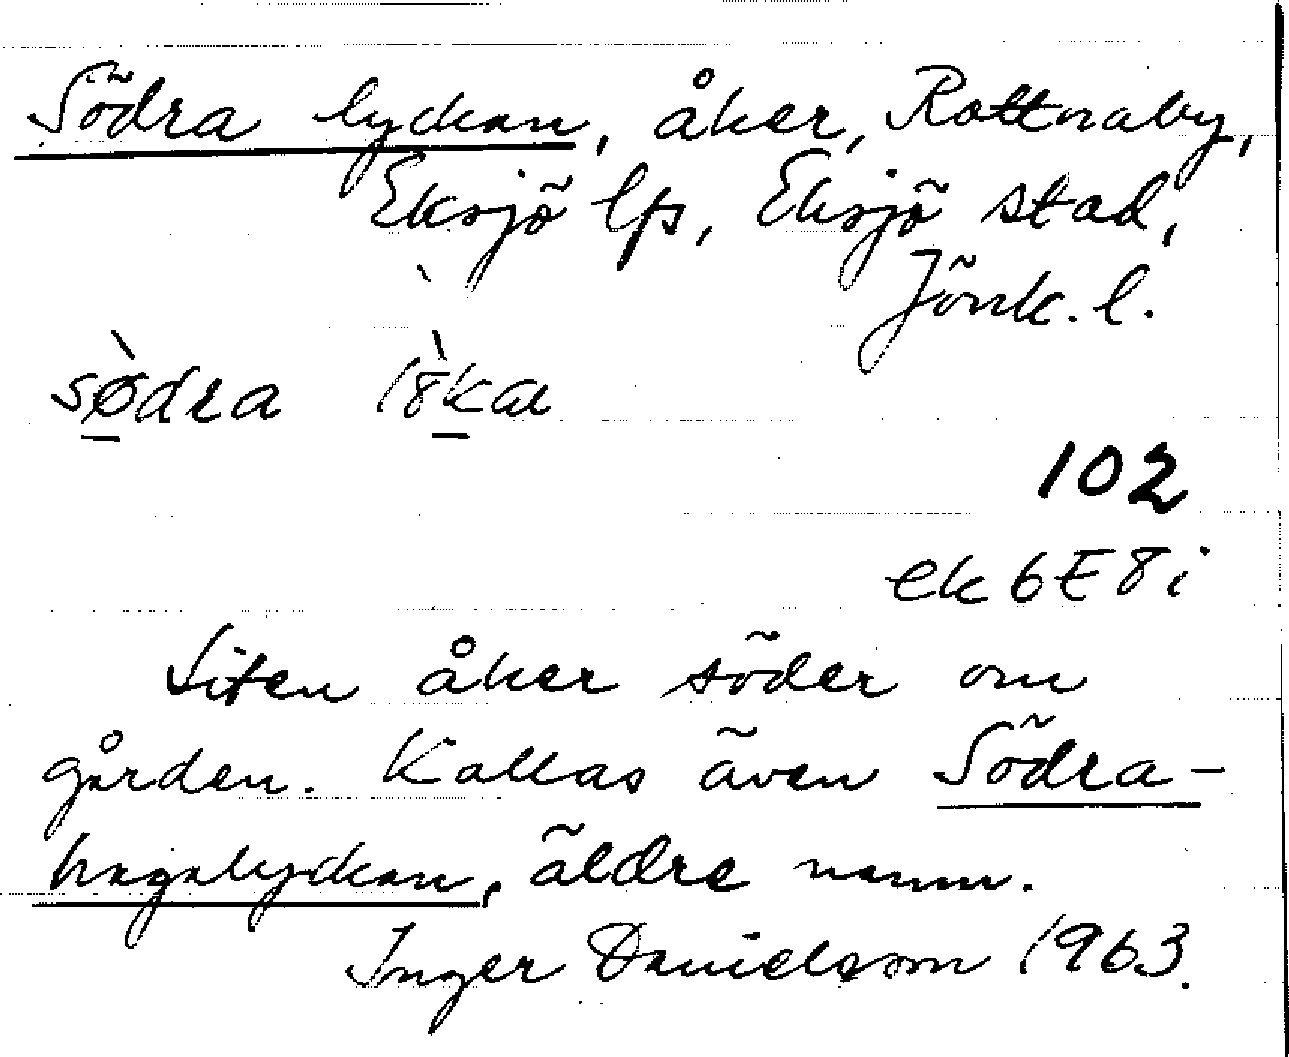 Södra lyckan, åker, Rottnaby,
Eksjö lfs, Eksjö stad,
Jönk. l.
sø̀dra
102
ek 6E8i
Liten åker söder om
gården. Kallas även Södra-
hagalyckan, äldre namn.
Inger Danielsson 1963.